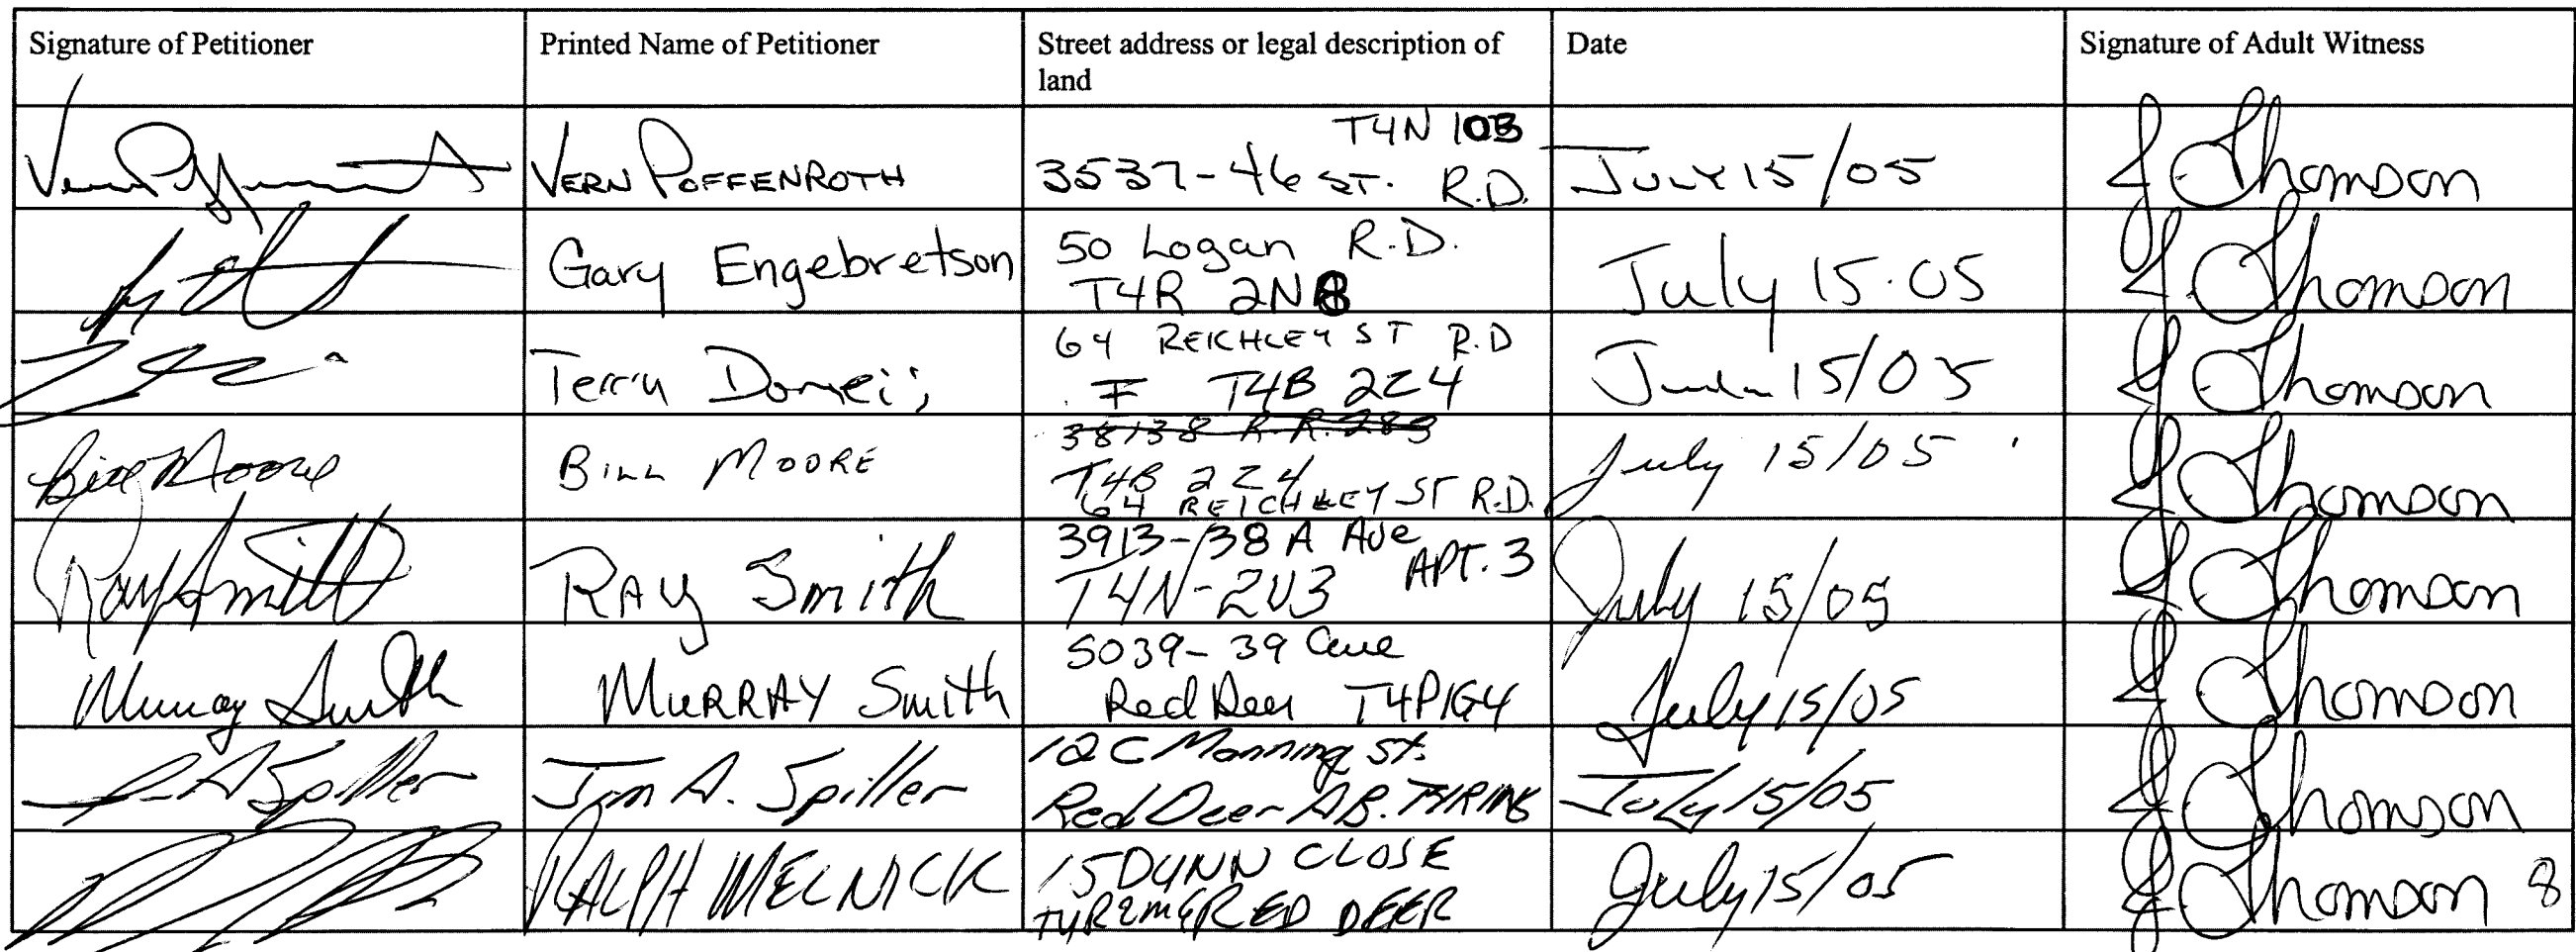 Signature of Petitioner
Printed Name of Petitioner
Street address or legal description of
land
Date
Signature of Adult Witness
VERN POFFENROTH
T4N 1C3
3537-46 ST. R.D.
JULY 15/05
J Thomson
Gary Engebretson
50 Logan R.D.
T4R 2N8
July 15.05
J Thomson
Terry
64 REICHLEY ST R.D
T4B 2Z4
15/05
J Thomson
Bill Moore
BILL MOORE
38138 R.R. 283
T4B 2Z4
64 REICHLEY ST R.D.
July 15/05
J Thomson
Ray Smith
RAY Smith
3913-38 A Ave
APT. 3
T4N-2V3
July 15/05
J Thomson
Murray Smith
MURRAY Smith
5039-39 Ave
Red Deer T4P1G4
July 15/05
J Thomson
A Spiller
Jim A. Spiller
12 C Manning St.
Red Deer AB.
July 15/05
J Thomson
RALPH MELNICK
15 DUNN CLOSE
RED DEER
July 15/05
J Thomson 8